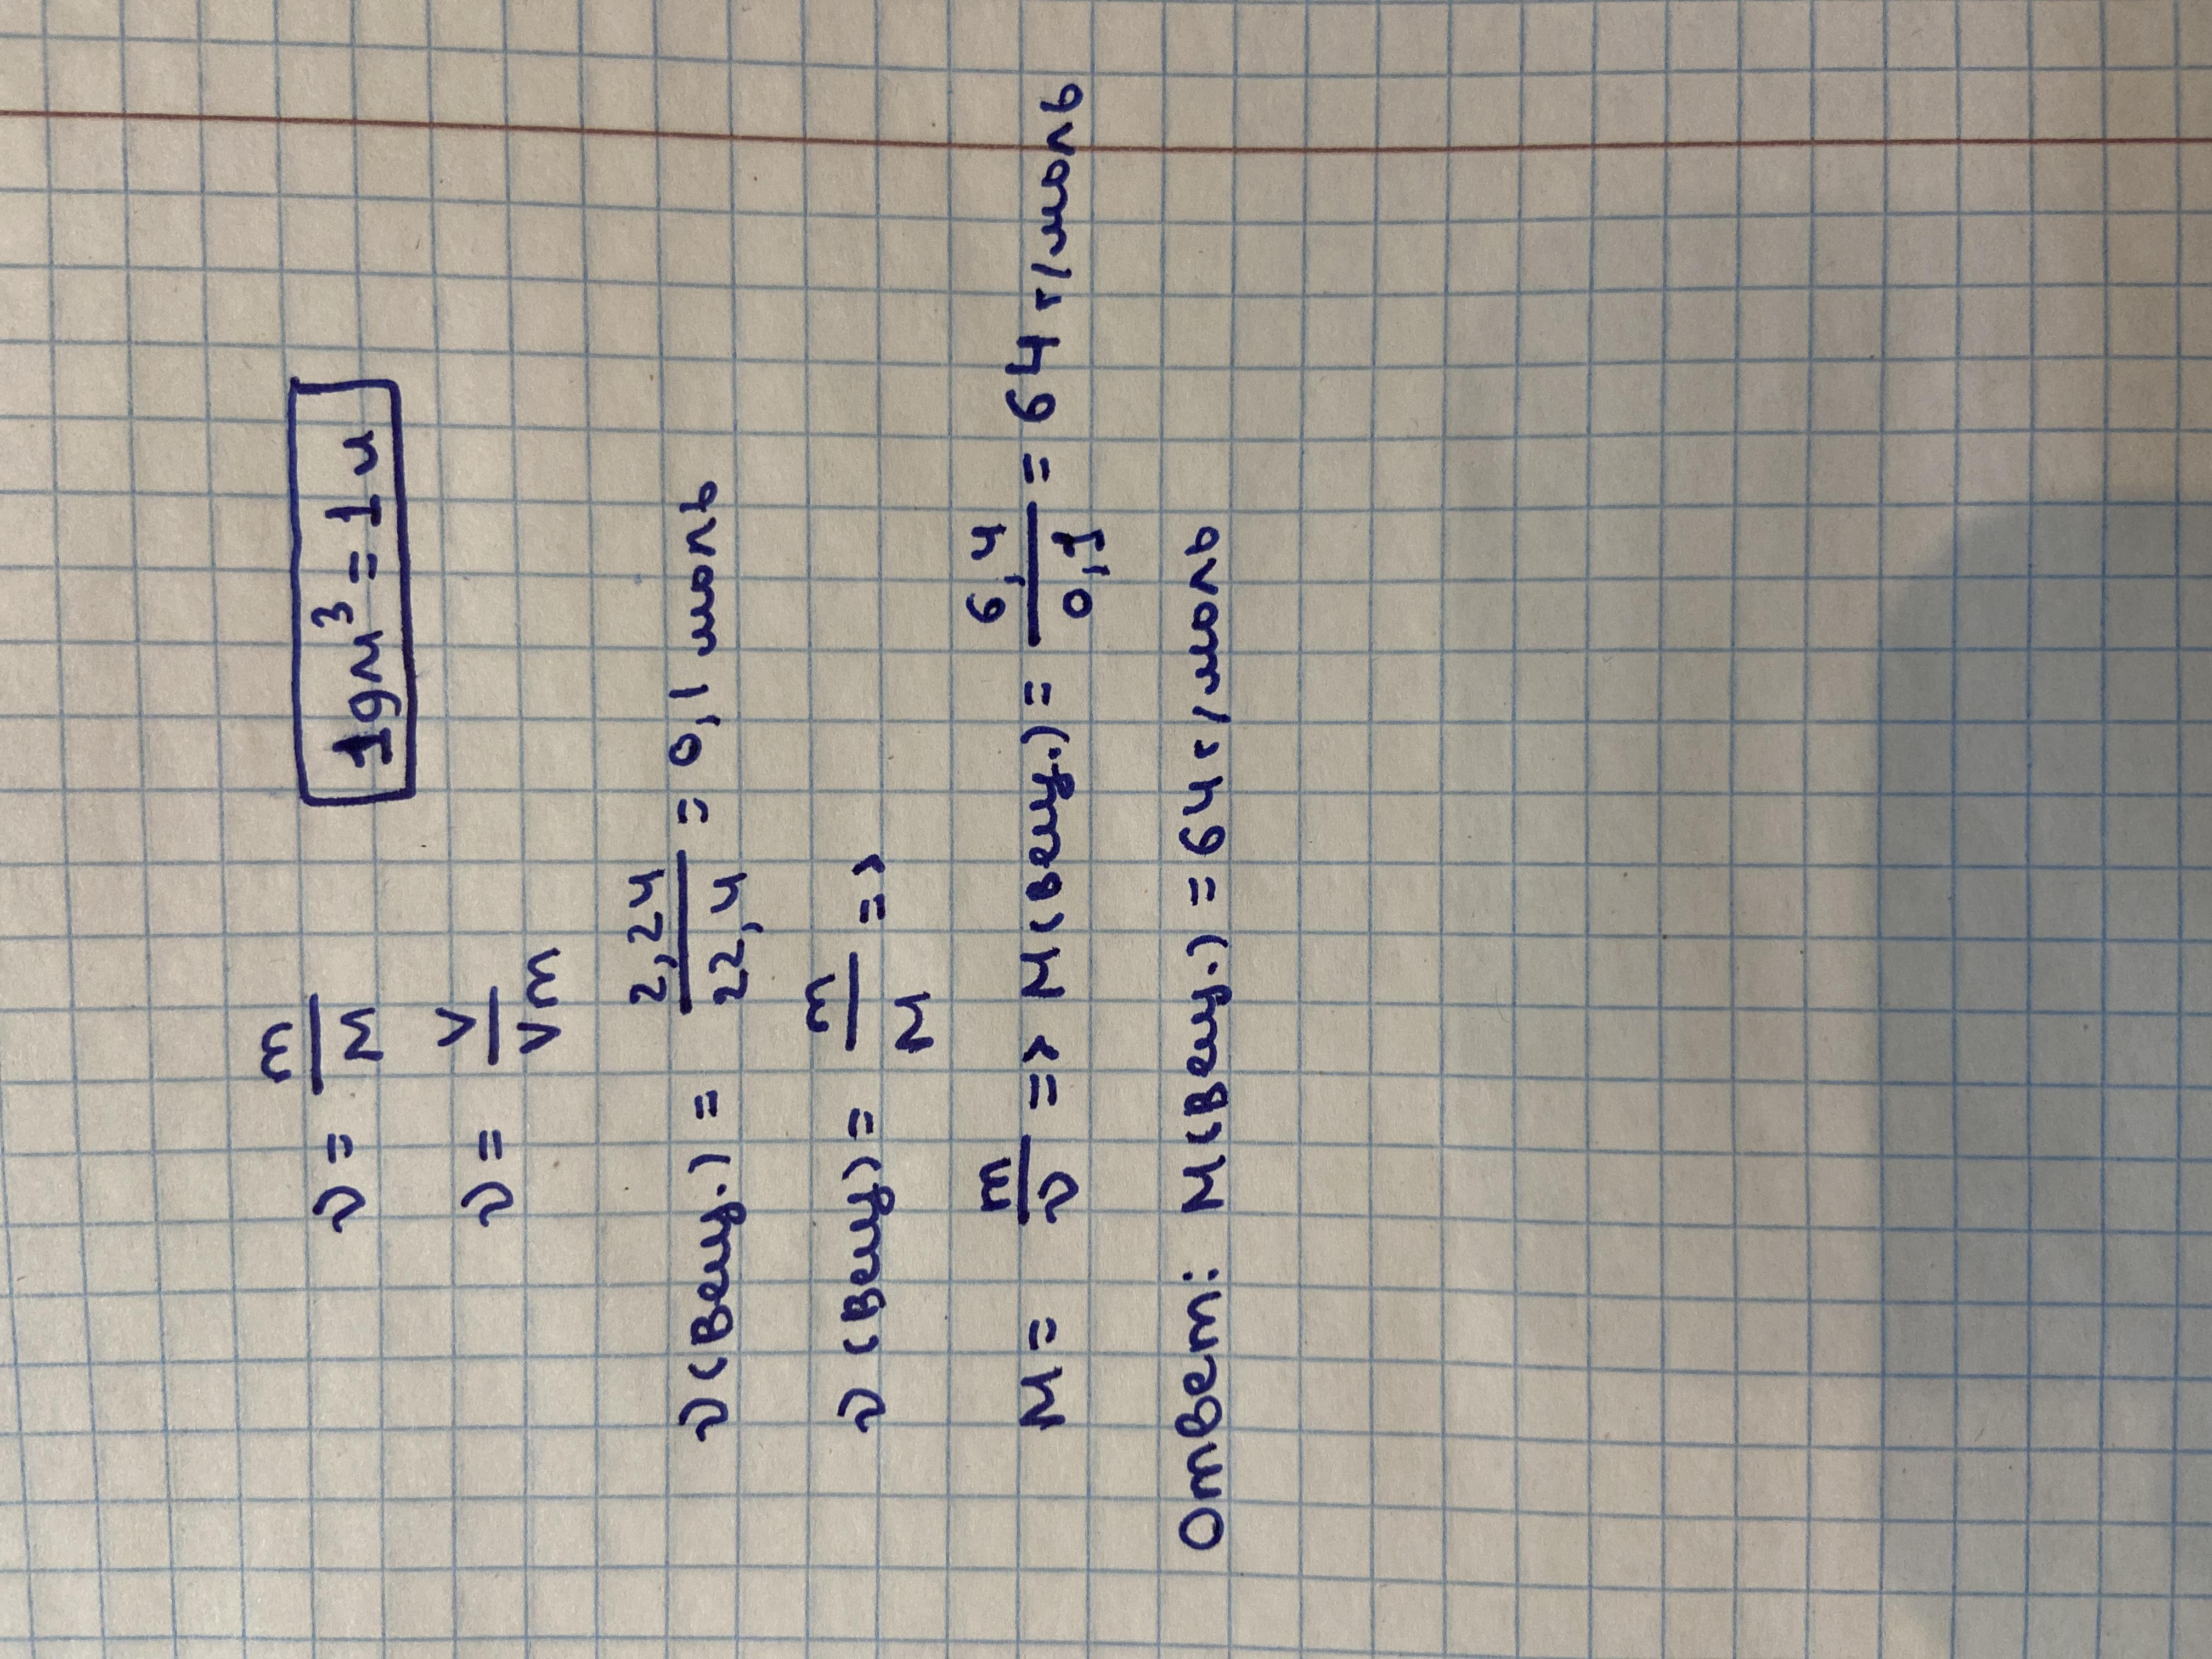 ν = m/M
1дм³ = 1л
ν = V/Vm
ν(вещ.) = 2,24/22,4 = 0,1 моль
ν(вещ) = m/M =>
M = m/ν => M(вещ.) = 6,4/0,1 = 64 г/моль
Ответ: M(вещ.) = 64 г/моль